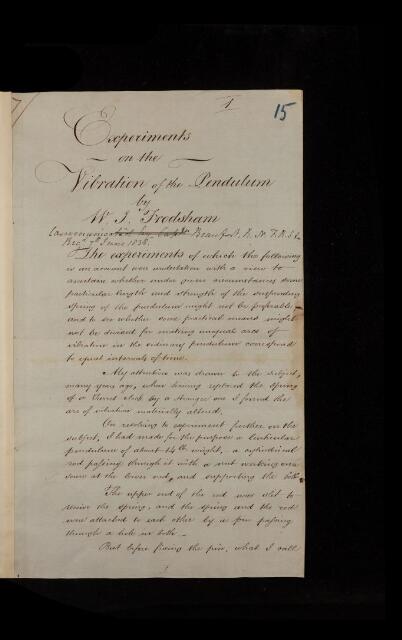 1
15
Experiments
on the
Vibration of the Pendulum
by
W. J. Frodsham
Communicated by Capt. Beaufort, R. N. F.R.S. &
Rec. 7th June 1838.
The experiments of which the following
is an account were undertaken with a view to
ascertain whether under given circumstances some
particular length and strength of the suspending
spring of the pendulum might not be preferable
and to see whether some practical means might
not be devised for making unequal arcs of
vibration in the ordinary pendulum correspond
to equal intervals of time.
My attention was drawn to the subject,
many years ago, when having replaced the spring
of a clock by a stronger one I found the
arc of vibration materially altered.
On resolving to experiment further on the
subject, I had made for the purpose a lenticular
pendulum of about 14 lb weight, a cylindrical
rod passing through it with a nut working on a
screw at the lower end, and supporting the bob.
The upper end of the rod was slit to
receive the spring, and the spring and the rod
were attached to each other by a pin passing
through a hole in both.
But before fixing the pin, what I call